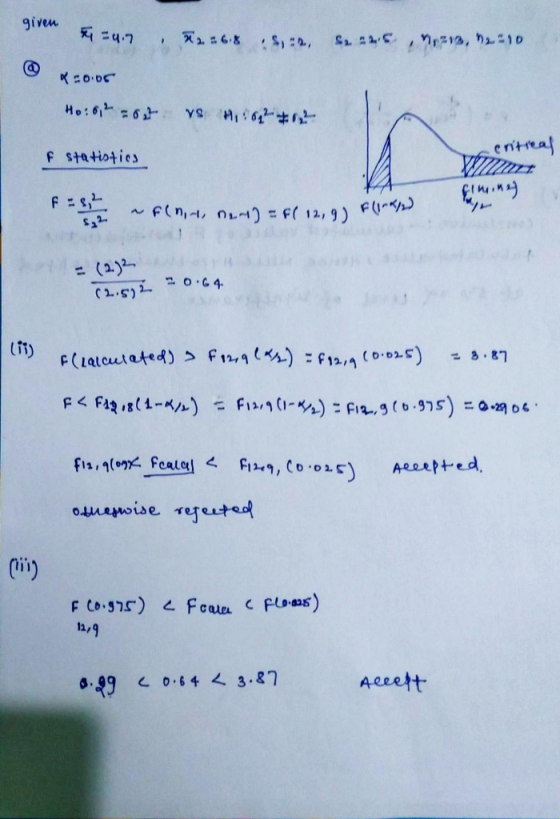 given x̄1 = 4.7 , x̄2 = 6.8 , s1 = 2, s2 = 2.5 , n1 = 13, n2 = 10
ⓐ α = 0.05
H0 : σ1² = σ2² vs H1 : σ1² ≠ σ2²
critical
F(1-α/2)
F(n1, n2) α/2
F statistics
F = s1²/s2² ~ F(n1-1, n2-1) = F(12, 9)
= (2)²/(2.5)² = 0.64
(ii) F(calculated) > F12,9(α/2) = F12,9(0.025) = 3.87
F < F12,8(1-α/2) = F12,9(1-α/2) = F12,9(0.975) = 0.2906
F12,9 < Fcalcal < F12,9, (0.025) Accepted.
otherwise rejected
(iii)
F(0.975) < Fcalcu < F(0.025)
12,9
0.29 < 0.64 < 3.87 Accept